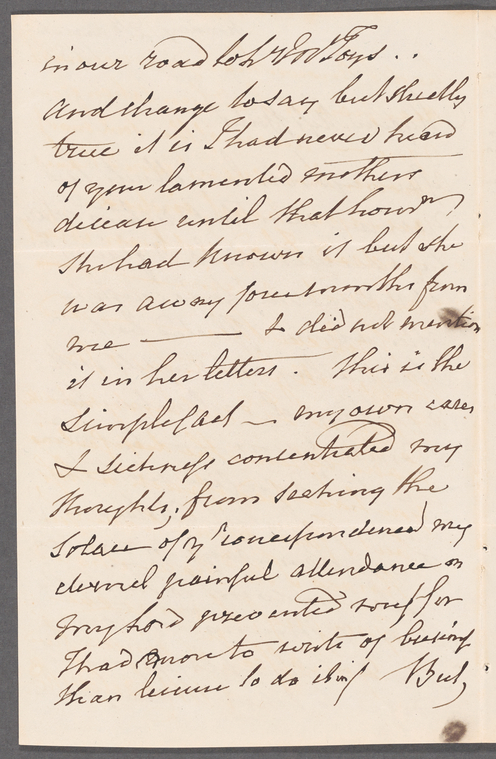 in our road to
and strange to say but strictly
true it is I had never heard
of your lamented mothers
disease until that hour
She had known it but she
was away four months from
me — & did not mention
it in her letters. This is the
simple fact — my own cares
& sickness concentrated my
thoughts, from seeking the
solace of yr correspondence my
eternal painful attendance on
my Lord prevented for
I had more to write of business
than leisure to do it in But,